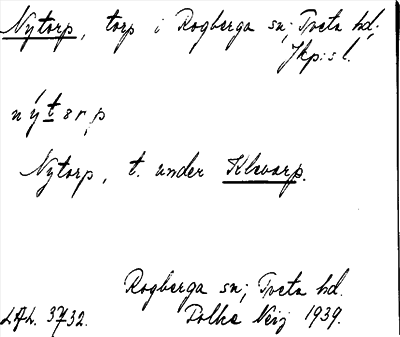 Nytorp, torp i Rogberga sn; Tveta hd;
Jkp:s l.
nýtor,p
Nytorp, t. under Klevarp.
Rogberga sn; Tveta hd.
LAL. 3732. Folke Neij 1939.